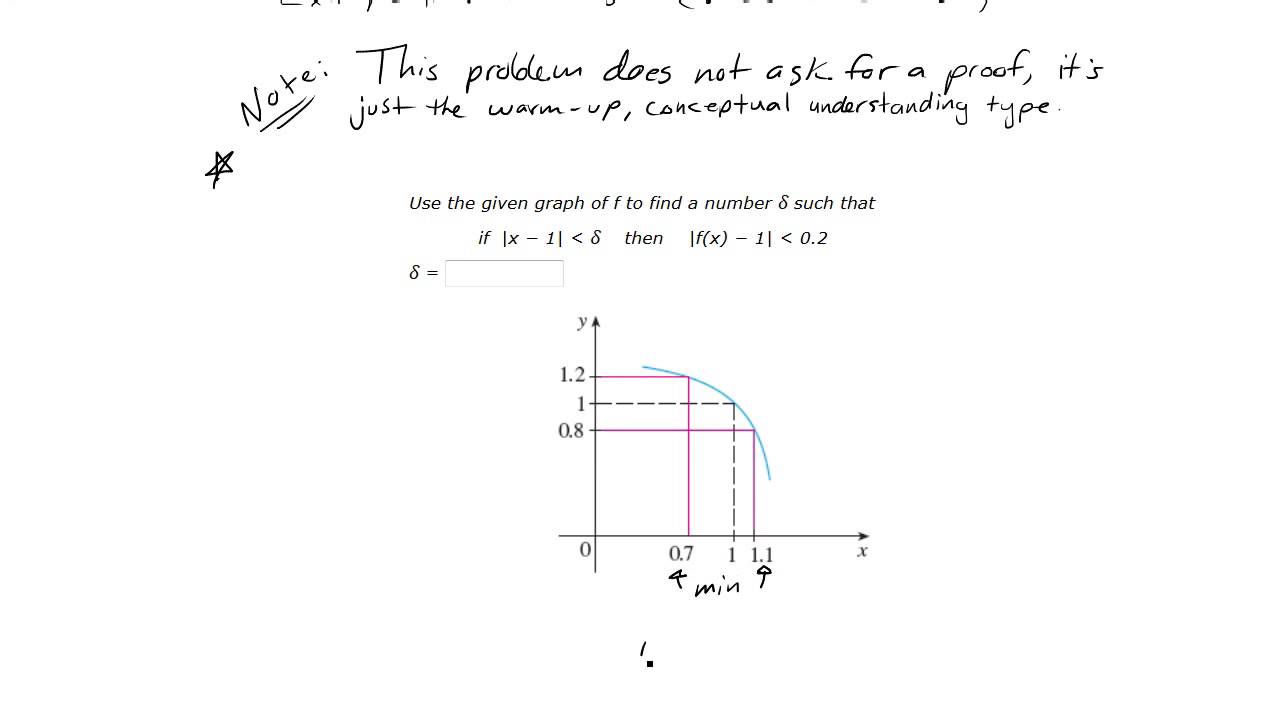 Note: This problem does not ask for a proof, it's
just the warm-up, conceptual understanding type.
Use the given graph of f to find a number δ such that
if |x − 1| < δ then |f(x) − 1| < 0.2
δ =
y
1.2
1
0.8
0 0.7 1 1.1 x
min